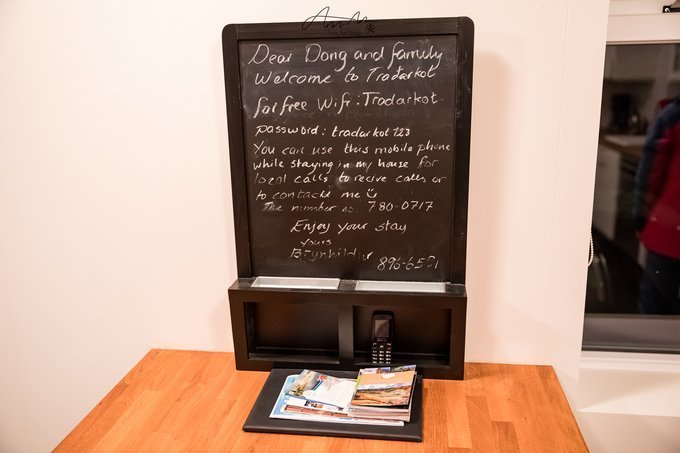 Dear Dong and family
Welcome to Tradarkot
for free Wifi: Tradarkot
password: tradarkot123
You can use this mobile phone
while staying in my house for
local calls to recive calls or
to contacte me
The number is 780-0717
Enjoy your stay
yours
Brynhildur